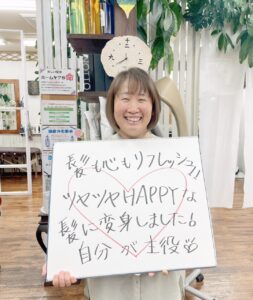 髪も心もリフレッシュ!
ツヤツヤHAPPYな
髪に変身しました!
自分が主役